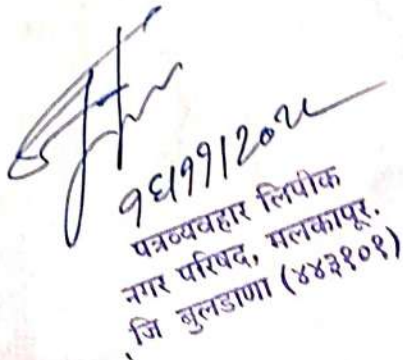 १६/११/२०२५
पत्रव्यवहार लिपीक
नगर परिषद, मलकापूर.
जि बुलडाणा (४४३१०१)